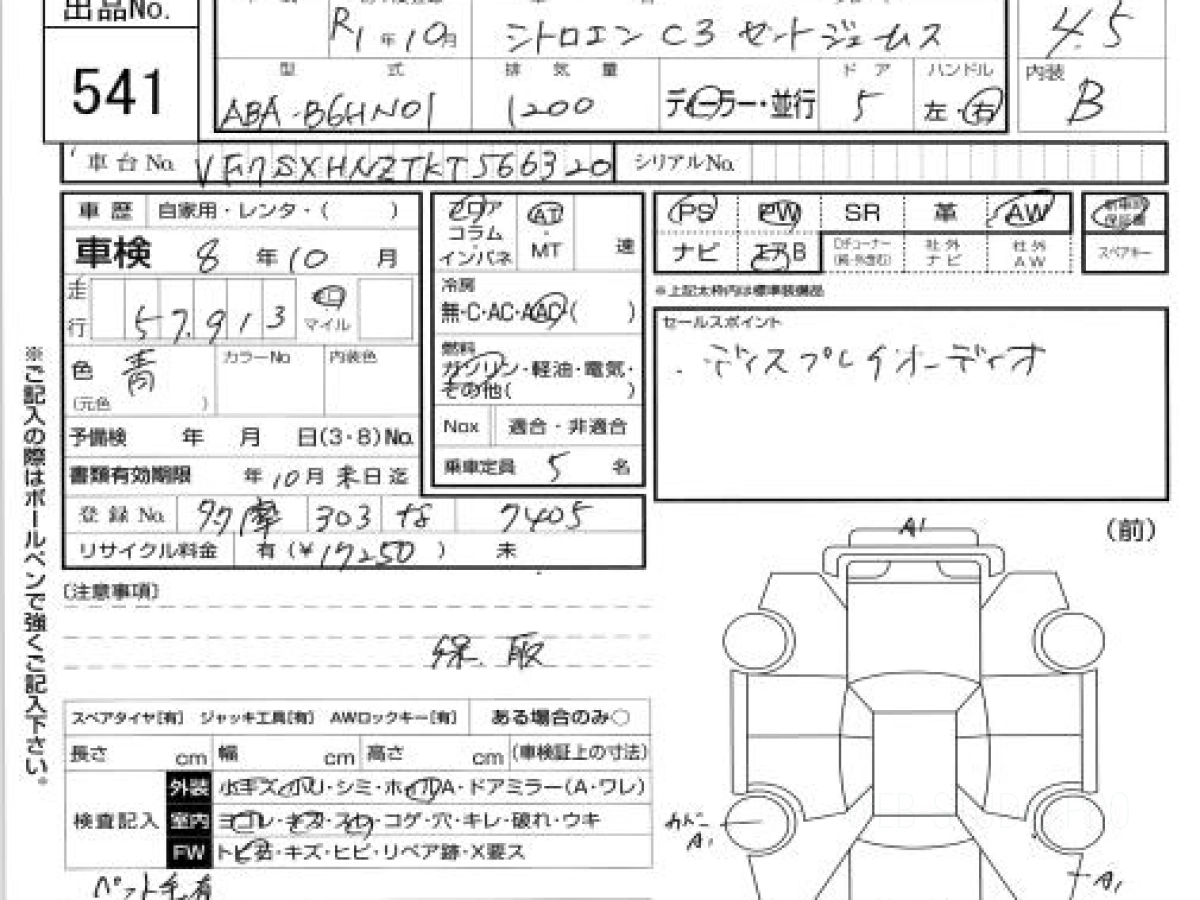 出品No.
541
R1年10月
シトロエン C3 セントジェームス
4.5
型 式
排 気 量
ドア
ハンドル
内装
ABA-B6HN01
1200
ディーラー・並行
5
左・右
B
車台No. VF7SXHNZTKT566320
シリアルNo.
車歴 自家用・レンタ・( )
車検 8年10月
走行 57,913 km マイル
色 青
(元色 )
カラーNo
内装色
予備検 年 月 日(3・8)No.
書類有効期限 年10月末日迄
登録No. 多摩 303 な 7405
リサイクル料金 有(¥17250) 未
フロア
コラム
インパネ
AT
・
MT
速
冷房
無・C・AC・AAC・( )
燃料
ガソリン・軽油・電気・
その他( )
Nox 適合・非適合
乗車定員 5 名
PS PW SR 革 AW
新車時保証書
ナビ エアB Dチューナー 社外ナビ 社外AW
スペアキー
※上記太枠内は標準装備品
セールスポイント
・ディスプレイオーディオ
※ご記入の際はボールペンで強くご記入下さい。
〔注意事項〕
保、取
スペアタイヤ[有] ジャッキ工具[有] AWロックキー[有] ある場合のみ○
長さ cm 幅 cm 高さ cm (車検証上の寸法)
検査記入
外装 小キズ・小ハリ・シミ・ホイルA・ドアミラー(A・ワレ)
室内 ヨゴレ・キズ・スレ・コゲ・穴・キレ・破れ・ウキ
FW トビ石・キズ・ヒビ・リペア跡・X要ス
ペット毛有
(前)
A1
カバーA1
A1